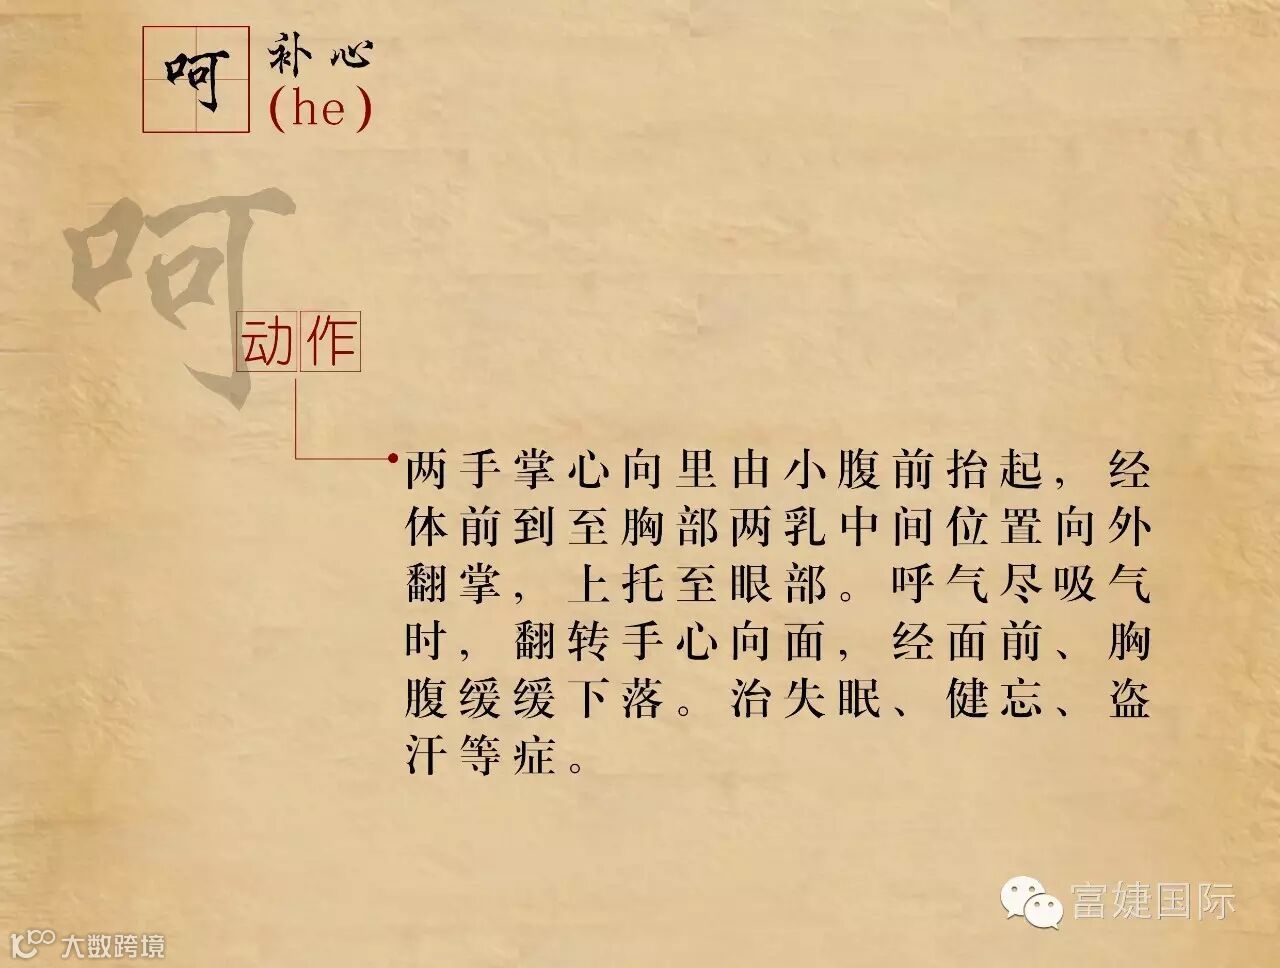 呵
补心
(he)
呵
动作
两手掌心向里由小腹前抬起，经
体前到至胸部两乳中间位置向外
翻掌，上托至眼部。呼气尽吸气
时，翻转手心向面，经面前、胸
腹缓缓下落。治失眠、健忘、盗
汗等症。
富婕国际
大数跨境